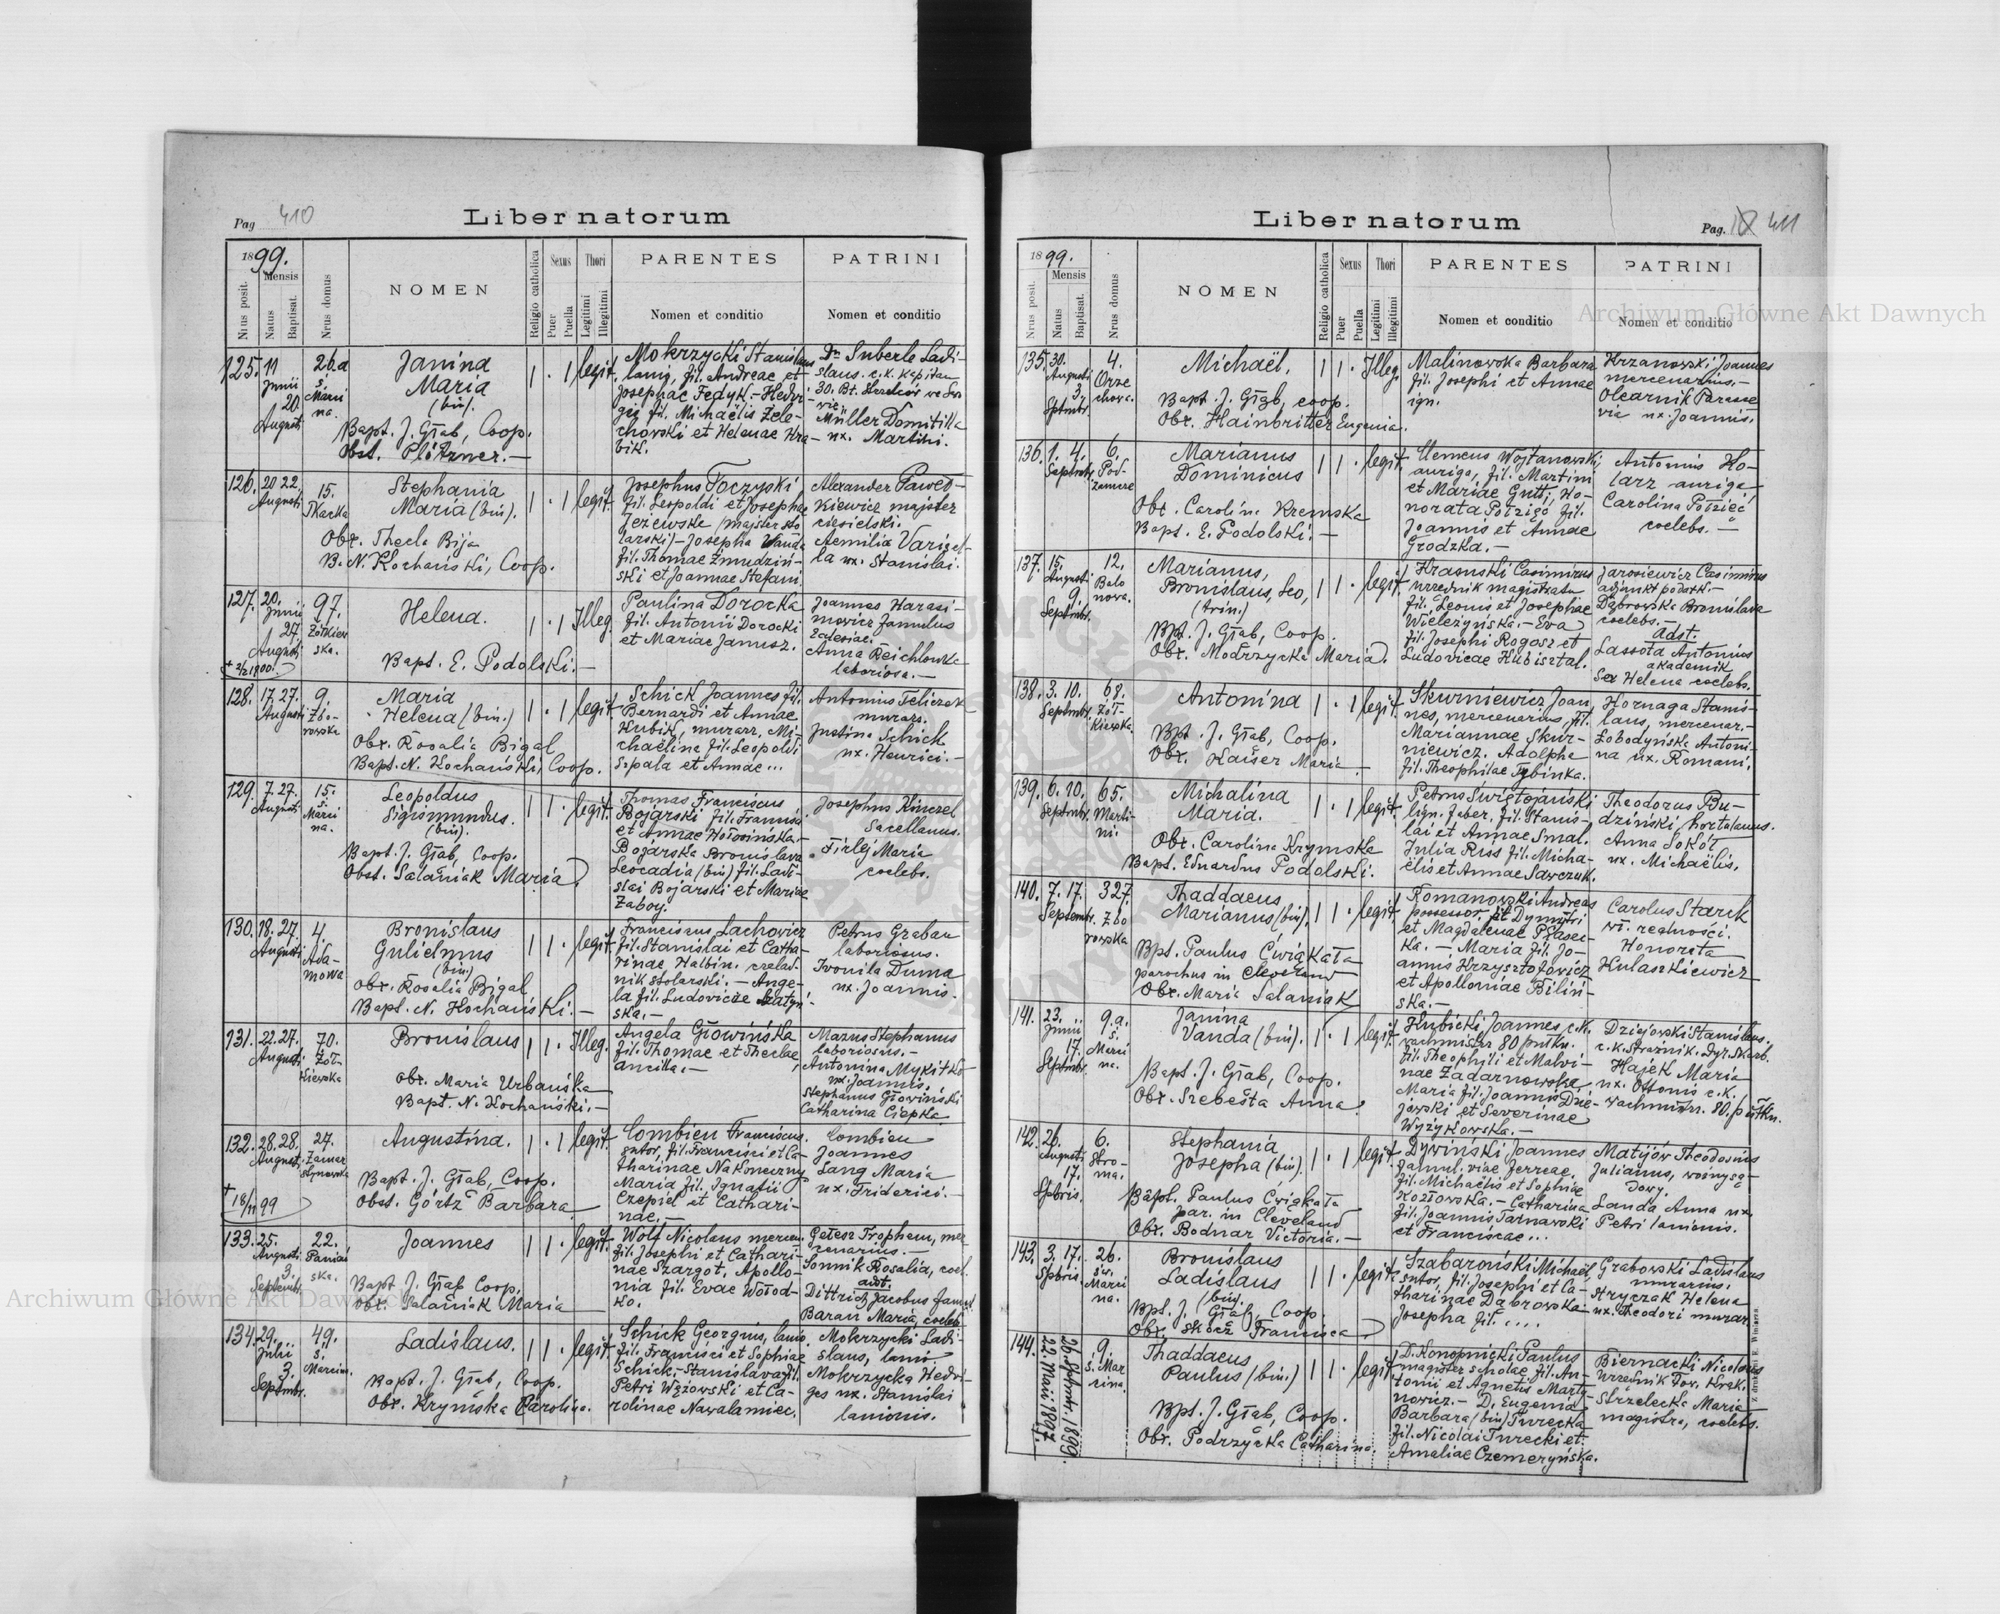 Pag. 410
Liber natorum
1899.
Mensis
Nrus posit.
Natus
Baptisat.
Nrus domus
NOMEN
Religio catholica
Sexus
Puer
Puella
Thori
Legitimi
Illegitimi
PARENTES
Nomen et conditio
PATRINI
Nomen et conditio
125. 11 Junii 20 Augusti
26.a s. Marcina.
Janina
Maria
(bin).
Bapt. J. Głąb, Coop.
1 . 1 legit.
Mokrzycki Stanislaus
lanio, fil. Andreae et
Josephae Fedyk. - Hedvi-
gis fil. Michaëlis Zelo-
chowski et Helenae Hra-
bik.
Dr. Suberle Ladi-
slaus. c.k. Kapitan
Müller Domitilla
ux. Martini.
126. 20 22. Augusti
15. Tkacka
Stephania
Maria (bin).
Obx. Thecla Bija
B. N. Kochański, Coop.
1 . 1 legit.
Josephus Toczyski
fil. Leopoldi et Josephae
Jezewske (majster sto
larski) - Josepha Wanda
fil. Thomae Żmudziń-
ski et Joannae Stefani.
Alexander Pawel-
kiewicz majster
ciesielski.
Aemilia
la ux. Stanislai.
127. 20. Junii 27 Augusti
97. Żółkiewska.
Helena.
Bapt. E. Podolski. -
1 . 1 Illeg.
Paulina Dorocka
fil. Antonii Dorocki
et Mariae Janusz.
Joannes Harasi-
mowicz famulus
Eclesiae.
Anna Reichlowska
laboriosa. -
128. 17. 27. Augusti
9. Zborowska
Maria
Helena (bin.)
Obx. Rosalia Bigal
Bapt. N. Kochański, Coop.
1 . 1 legit.
Schick Joannes fil.
Bernardi et Annae
Kubik, murarz, Mi-
chaëlina fil. Leopoldi
Szpala et Annae...
Antonius Teliczek
murarz.
Justina Schick
ux. Henrici. -
129. 7. 27. Augusti
15. s. Marcina.
Leopoldus
Sigismundus.
(bin).
Bapt. J. Głąb, Coop.
Obst. Salaniak Maria
1 1 . legit.
Thomas Franciscus
Bojarski fil. Francisci
et Annae Hołosińska.-
Bojarska Bronislava
Leocadia (bin) fil. Ladi-
slai Bojarski et Mariae
Zaboy.
Josephus Kinczel
Sacellanus.
Firlej Maria
coelebs.
130. 18. 27. Augusti
4 Adamowa
Bronislaus
Gulielmus
(bin)
Obx. Rosalia Bigal
Bapt. N. Kochański. -
1 1 . legit.
Franciscus Lachowicz
fil. Stanislai et Catha-
rinae Halbin. czelad-
nik stolarski. - Ange-
la fil. Ludovicae
ska. -
Petrus Graban
laboriosus.
Iwonila Duma
ux. Joannis.
131. 22. 27. Augusti
70. Żółkiewska
Bronislaus
Obx. Maria Urbańska
Bapt. N. Kochański. -
1 1 . Illeg.
Angela Głowińska
fil. Thomae et Theclae,
ancilla. -
Mazus Stephanus
laboriosus. -
Antonina Mykitko
ux. Joannis.
Stephanus Głowiński
Catharina Ciepka
132. 28. 28. Augusti
† 18/11 99
27. Zamarstynowska
Augustina.
Bapt. J. Głąb, Coop.
Obst. Görtz Barbara
1 . 1 legit.
Combieu Franciscus.
sutor, fil. Francisci et Ca-
tharinae Nakoneczny
Maria fil. Ignatii
Czepiel et Cathari-
nae. -
Combieu
Joannes
Lang Maria
ux. Friderici. -
133. 25. Augusti 3. Septembr.
22. Panieńska.
Joannes
Bapt J. Głąb Coop.
Obx. Salaniak Maria
1 1 . legit.
Wolf Nicolaus mercen.
fil. Josephi et Cathari-
nae Szargot, Apollo-
nia fil. Evae Wołod-
ko.
Getesz Trophem, mer
cenarius. -
Sonnik Rosalia, coel.
adst.
Dittrich Jacobus famul.
Baran Maria, coeleb.
134. 29. Julii 3. Septmbr.
49. s. Marcin.
Ladislaus.
Bapt. J. Głąb, Coop.
Obx. Krymska Carolina.
1 1 . legit.
Schick Georgius, lanio.
fil. Francisci et Sophiae
Schick, - Stanislava fil.
Petri Wązowski et Ca-
rolinae Nawalaniec.
Mokrzycki Ladi-
slaus, lanio.
Mokrzycka Hedvi-
ges ux. Stanislai
lanionis.
Liber natorum
Pag. 411
1899.
Mensis
Nrus posit.
Natus
Baptisat.
Nrus domus
NOMEN
Religio catholica
Sexus
Puer
Puella
Thori
Legitimi
Illegitimi
PARENTES
Nomen et conditio
PATRINI
Nomen et conditio
135. 30. Augusti 3. Septmbr.
4. Orzechowa.
Michaël,
Bapt. J. Głąb, coop.
Obx. Hainbritter Eugenia.
1 1 . Illeg.
Malinowska Barbara
fil. Josephi et Annae
ign.
Krzanowski Joannes
mercenarius. -
Olearnik Parasce
via ux. Joannis.
136. 1. 4. Septembr.
6. Podzamcze
Marianus
Dominicus
Obx. Carolina Kremska
Bapt. E. Podolski. -
1 1 . legit.
Clemens Wojtanowski,
auriga, fil. Martini
et Mariae Gutti, Ho-
norata Półzięć fil.
Joannis et Annae
Grodzka. -
Antonius Ko-
larz auriga
Carolina Półzięć
coelebs. -
137. 15. Augusti 9. Septmbr.
12. Balonowa.
Marianus,
Bronislaus, Leo,
(trin.)
Bpt. J. Głąb, Coop.
Obx. Modrzycka Maria.
1 1 . legit.
Krasuski Casimirus
urzednik magistratu
fil. Leonis et Josephae
Wieleżyńska. - Eva
fil. Josephi Rogosz et
Ludovicae Kubisztal.
Jarosiewicz Casimirus
adjunkt podatk. -
Dąbrowska Bronislava
coelebs. -
Adst.
Lassota Antonius
akademik
Helena coelebs.
138. 3. 10. Septmbr.
68. Żółkiewska
Antonina
Bpt. J. Głąb, Coop.
Obx. Kaiser Maria
1 . 1 legit.
Skurniewicz Joan
nes, mercenarius, fil.
Mariannae Skur-
niewicz. Adolpha
fil. Theophilae Tybinka.
Hornaga Stanis-
laus, mercenar. -
Łobodyńska Antoni-
na ux. Romani.
139. 6. 10. Septmbr.
65. Martini.
Michalina
Maria.
Obx. Carolina Krymska
Bapt. Eduardus Podolski.
1 . 1 legit.
Petrus Świętojański
lign. faber. fil. Stanis-
lai et Annae Smal.
Julia Riss fil. Micha-
ëlis et Annae Sawczuk.
Theodorus Bu-
dziński hortulanus.
Anna Sokół
ux. Michaëlis.
140. 7. 17. Septembr.
327. Zborowska
Thaddaeus
Marianus (bin).
Bpt. Paulus Ćwiąkała
parochus in Cleveland
Obx. Maria Salaniak
1 1 . legit.
Romanowski Andreas
possessor, fil. Dymitri
et Magdalenae Płasec-
ka. - Maria fil. Jo-
annis Krzysztofowicz
et Apolloniae Biliń-
ska. -
Carolus Starck
wł. realności.
Honorata
Kulaszkiewicz
141. 23. Junii 17. Septmbr.
9.a. s. Marcina.
Janina
Vanda (bin).
Bapt. J. Głąb, Coop.
Obx. Szebesta Anna.
1 . 1 legit.
Kubicki, Joannes c.k.
wachmistrz 80 pułku.
fil. Theophili et Malwi-
nae Zadarnowska,
Maria fil. Joannis Dzie-
jowski et Severinae
Wyżykowska. -
Dziejowski Stanislaus,
c.k. Strażnik. dyr. skarb.
Hajek Maria
ux. Ottonis c.k.
wachmistrz. 80. pułku.
142. 26. Augusti 17. 7bris.
6. Stroma.
Stephania
Josepha (bin).
Bapt. Paulus Ćwiąkała
par. in Cleveland
Obx. Bodnar Victoria. -
1 . 1 legit.
Dywiński Joannes
famul. viae ferreae,
fil. Michaëlis et Sophiae
Kozłowska. - Catharina
fil. Joannis Tarnawski
et Franciscae...
Matijów Theodosius
Julianus, woźny są-
dowy.
Landa Anna ux.
Petri lanionis.
143. 3. 17. 7bris.
26. św. Marcina.
Bronislaus
Ladislaus
(bin).
Bpt. J. Głąb, Coop.
Obx. Skocz Francisca
1 1 . legit.
Szabaroński Michaël,
sutor, fil. Josephi et Ca-
tharinae Dąbrowska
Josepha fil. ....
Grabowski Ladislaus
murarius.
Stryczak Helena
ux. Theodori murar.
144. 26. Septmbr. 1899.
22. Maii 1897
9. s. Marcina.
Thaddaeus
Paulus (bin.)
Bpt. J. Głąb, Coop.
Obx. Podrzycka Catharina.
1 1 . legit.
D. Konopnicki Paulus
magister scholae fil. An-
tonii et Agnetis Marty-
nowicz. - D. Eugenia
Barbara (bin) Turecka
fil. Nicolai Turecki et
Amaliae Czemeryńska.
Biernacki Nicolaus
Urzednik Tow. Krak.
Strzelecka Maria
magistra, coelebs.
Archiwum Główne Akt Dawnych
Archiwum Główne Akt Dawnych